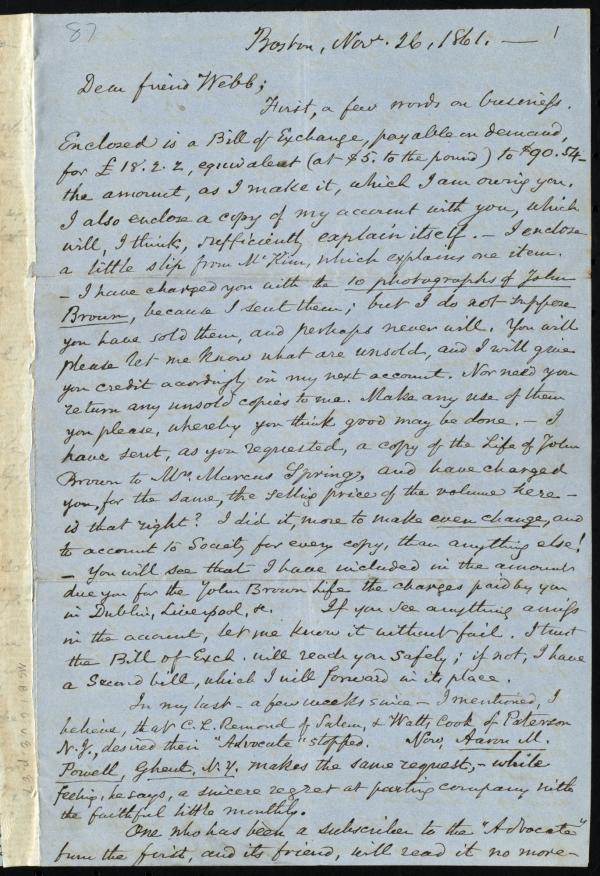 87
1
Boston, Nov. 26, 1861. —
Dear friend Webb;
First, a few words on business.
Enclosed is a Bill of Exchange, payable on demand,
for £18.2.2, equivalent (at $5. to the pound) to $90.54—
the amount, as I make it, which I am owing you.
I also enclose a copy of my account with you, which
will, I think, sufficiently explain itself. — I enclose
a little slip from McKim, which explains one item.
— I have charged you with the 10 photographs of John
Brown, because I sent them; but I do not suppose
you have sold them, and perhaps never will. You will
please let me know what are unsold, and I will give
you credit accordingly in my next account. Nor need you
return any unsold copies to me. Make any use of them
you please, whereby you think good may be done. — I
have sent, as you requested, a copy of the Life of John
Brown to Mrs. Marcus Spring, and have charged
you, for the same, the selling price of the volume here —
is that right? I did it, more to make even change, and
to account to Society for every copy, than anything else!
— You will see that I have included in the amount
due you for the John Brown Life the charges paid by you
in Dublin, Liverpool, &c. If you see anything amiss
in the account, let me know it without fail. I trust
the Bill of Exch. will reach you safely; if not, I have
a Second bill, which I will forward in its place.
In my last — a few weeks since — I mentioned, I
believe, that C. L. Remond of Salem, & Watts Cook of Paterson
N.J., desired their "Advocate" stopped. Now, Aaron M.
Powell, Ghent, N.Y. makes the same request, — while
feeling, he says, a sincere regret at parting company with
the faithful little monthly.
One who has been a subscriber to the "Advocate"
from the first, and its friend, will read it no more —